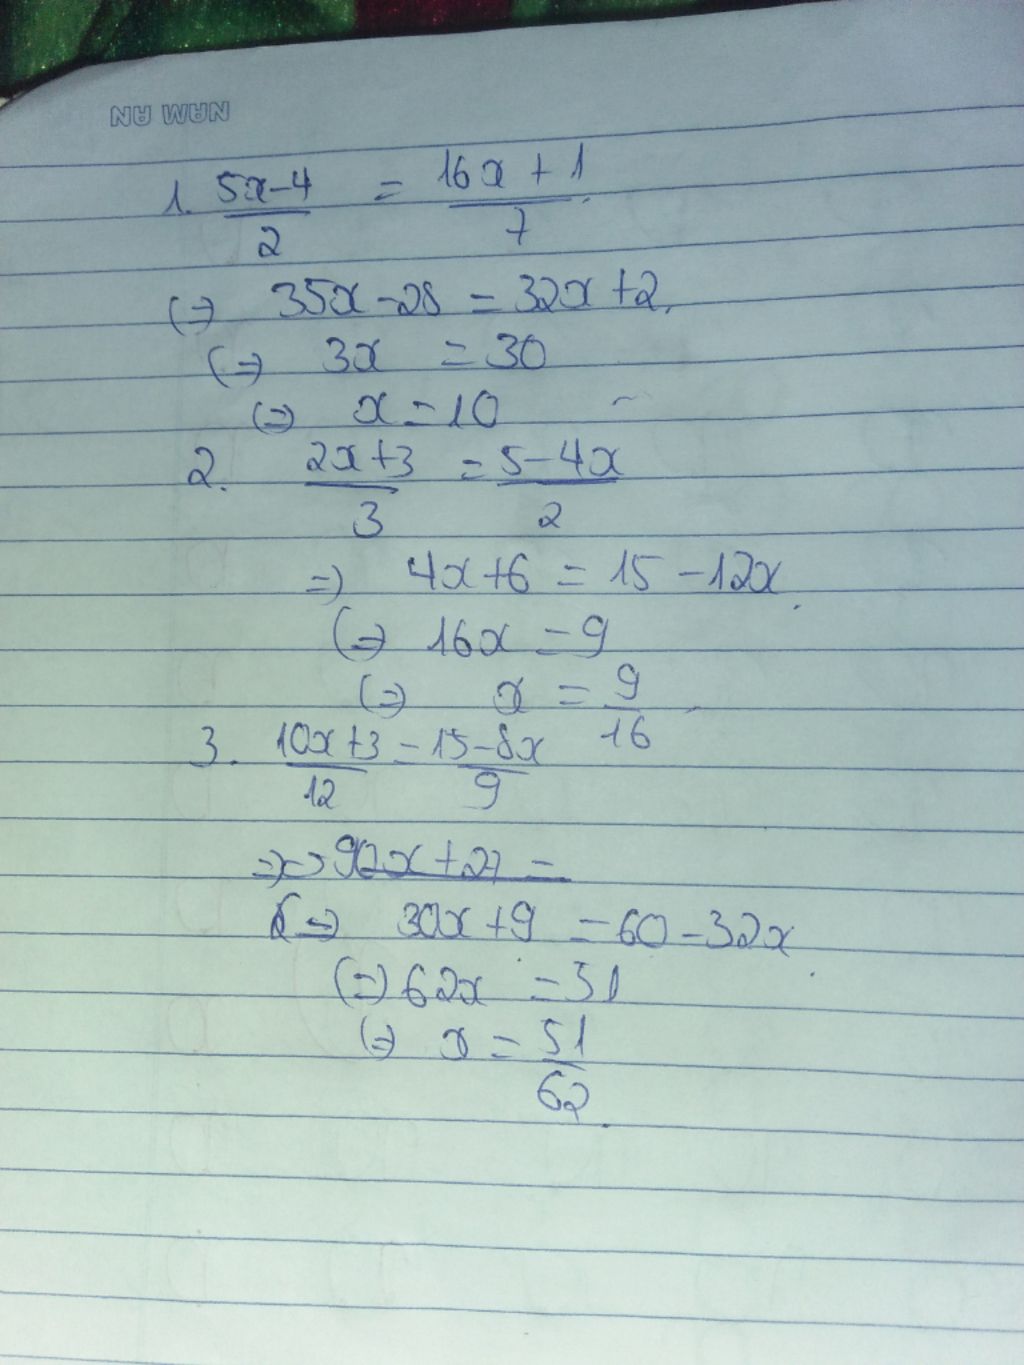 NAM AN
1. (5x-4)/2 = (16x+1)/7
(=) 35x-28 = 32x+2.
(=) 3x = 30
(=) x = 10
2. (2x+3)/3 = (5-4x)/2
=) 4x+6 = 15-12x
(=) 16x = 9
(=) x = 9/16
3. (10x+3)/12 = (15-8x)/9
90x+27 =
(=) 30x+9 = 60-32x
(=) 62x = 51
(=) x = 51/62.